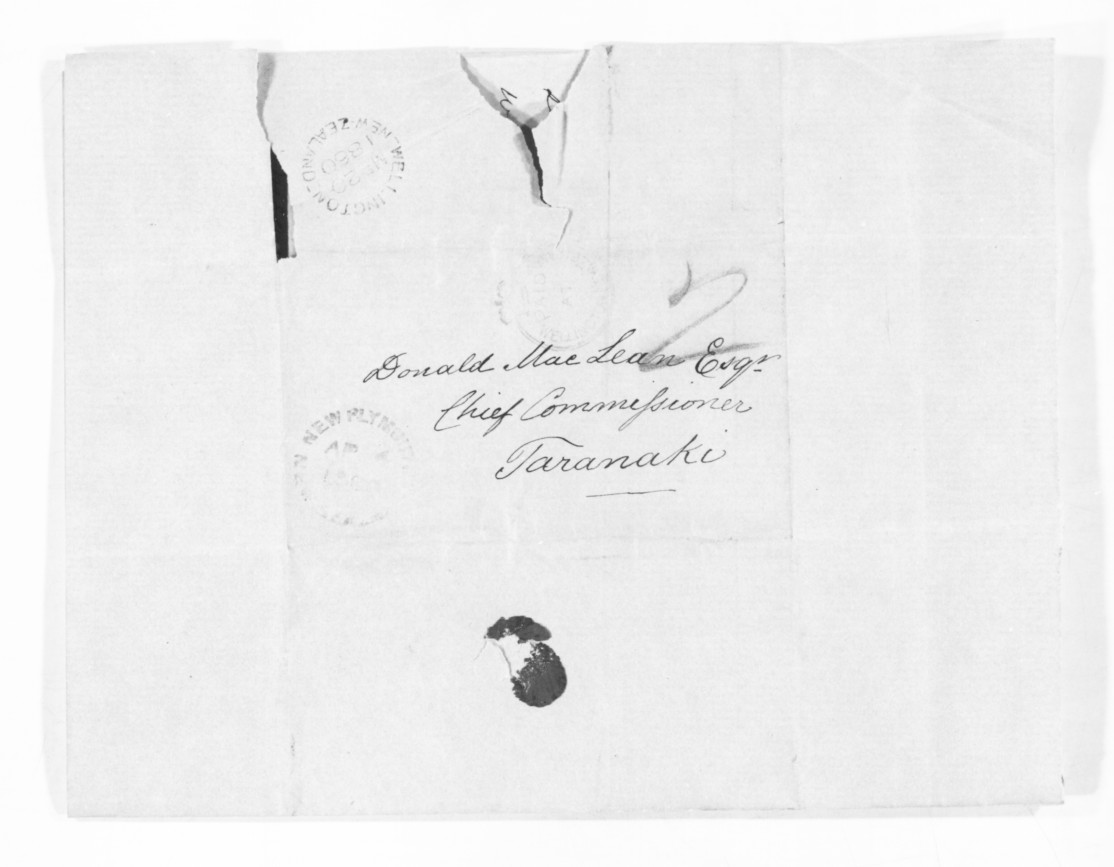 WELLINGTON - NEW-ZEALAND
1860
2
Donald Mac Lean Esqr
Chief Commissioner
Taranaki
NEW PLYMOUTH